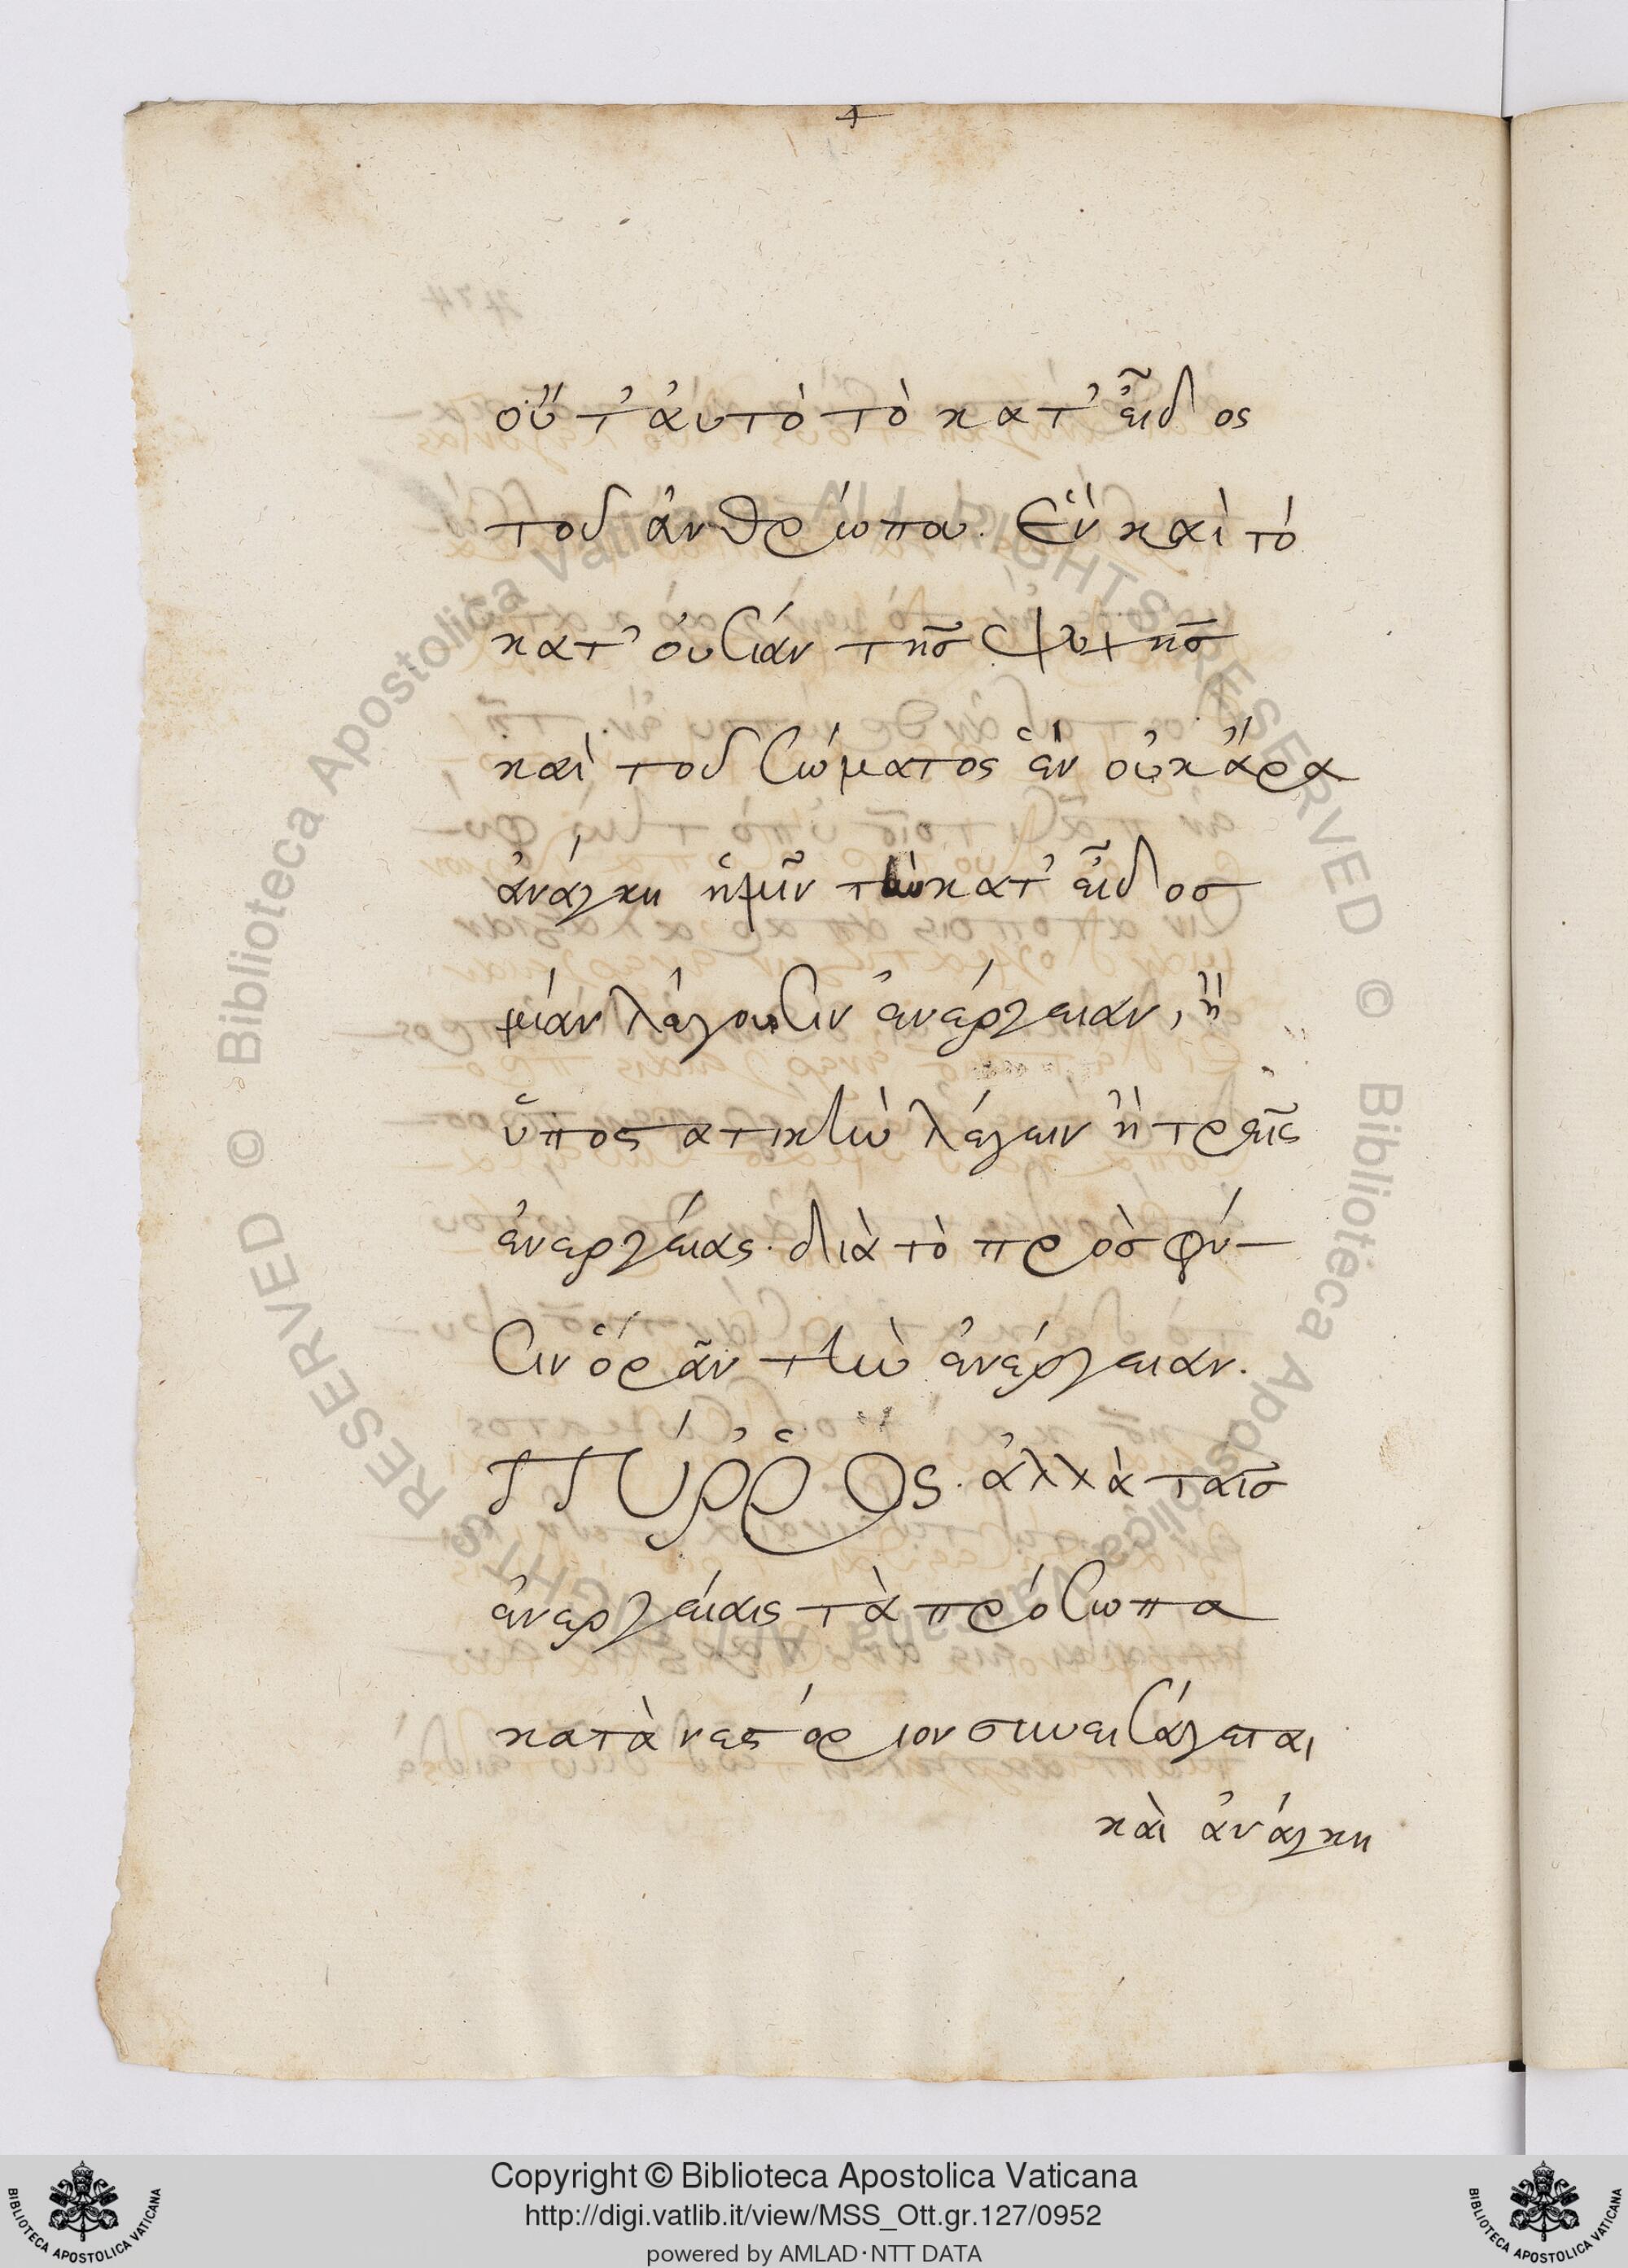 οὔτ' ἀυτὸ τὸ κατ' εἶδος
τοῦ ἀνθρώπου. Ἓν καὶ τὸ
κατ' ὀυσίαν τῆσ ψυχῆσ
καὶ τοῦ σώματος ἓν οὐκ ἄρα
ἀνάγκη ἡμῖν τὴν κατ' εἶδοσ
μίαν λέγουσιν ἐνέργειαν, ἢ
ὑποστατικὴν λέγειν ἢ τρεῖς
ἐνεργείας. διὰ τὸ πρὸσ φύ-
σιν ὁρᾶν τὴν ἐνέργειαν.
ΠΎῤῥΟς. ἀλλὰ ταῖσ
ἐνεργείαις τὰ πρόσωπα
κατὰ νεστόριον συνεισάγεται
καὶ ἀνάγκη
Copyright © Biblioteca Apostolica Vaticana
http://digi.vatlib.it/view/MSS_Ott.gr.127/0952
powered by AMLAD·NTT DATA
BIBLIOTECA APOSTOLICA VATICANA
BIBLIOTECA APOSTOLICA VATICANA
© Biblioteca Apostolica Vaticana ALL RIGHTS RESERVED
© Biblioteca Apostolica Vaticana ALL RIGHTS RESERVED